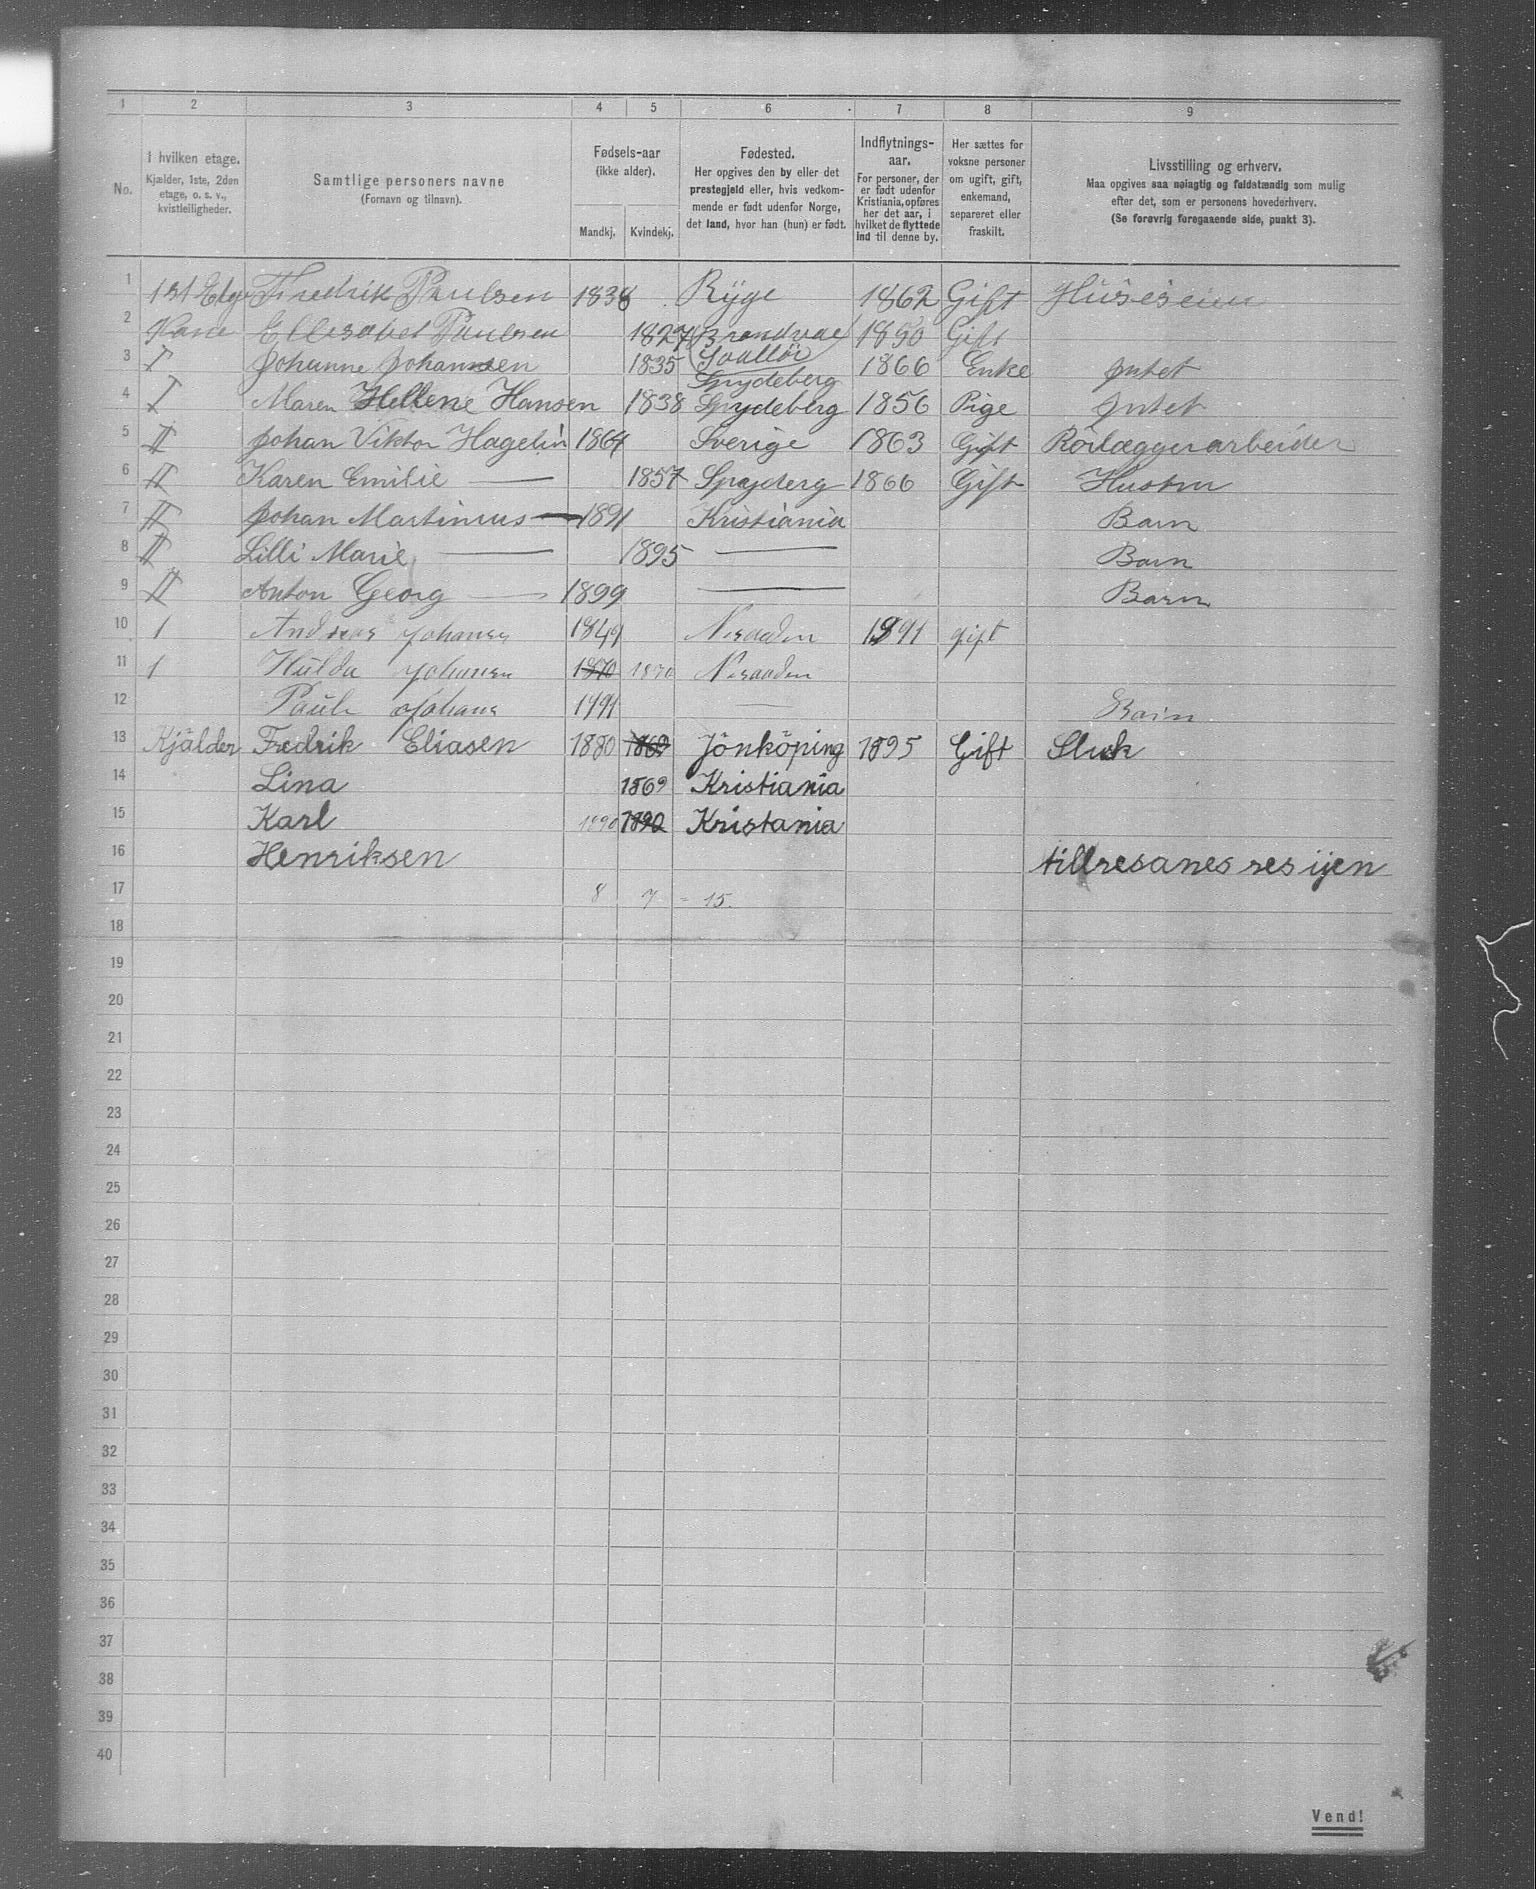 1 2 3 4 5 6 7 8 9
No.
I hvilken etage.
Kjælder, 1ste, 2den
etage, o. s. v.,
kvistleiligheder.
Samtlige personers navne
(Fornavn og tilnavn).
Fødsels-aar
(ikke alder).
Mandkj. Kvindekj.
Fødested.
Her opgives den by eller det
prestegjeld eller, hvis vedkom-
mende er født udenfor Norge,
det land, hvor han (hun) er født.
Indflytnings-
aar.
For personer, der
er født udenfor
Kristiania, opføres
her det aar, i
hvilket de flyttede
ind til denne by.
Her sættes for
voksne personer
om ugift, gift,
enkemand,
separeret eller
fraskilt.
Livsstilling og erhverv.
Maa opgives saa nøiagtig og fuldstændig som mulig
efter det, som er personens hovederhverv.
(Se forøvrig foregaaende side, punkt 3).
1 1st Etg Fredrik Paulsen 1838 Ryge 1862 Gift Huseseier
2 Ellesabet Paulsen 1827 Brandval 1850 Gift
3 I Johanne Johannsen 1835 Spydeberg 1866 Enke Intet
4 I Maren Hellene Hansen 1838 Spydeberg 1856 Pige Intet
5 II Johan Viktor Hagelin 1864 Sverige 1863 Gift Rörlæggerarbeider
6 II Karen Emilie — 1857 Spyderg 1866 Gift Hustru
7 II Johan Martinius — 1891 Kristiania Barn
8 II Lilli Marie — 1895 — Barn
9 II Anton Georg — 1899 — Barn
10 1 Andreas Johansen 1849 Nesodden 1891 gift
11 1 Hulda Johansen 1870 1870 Nesodden
12 Paul Johans 1891 — Barn
13 Kjälder Fredrik Eliasen 1880 1869 Jönköping 1895 Gift Sluk
14 Lina 1869 Kristiania
15 Karl 1890 1890 Kristania
16 Henriksen tillresanes res ijen
17 8 7 = 15.
18
19
20
21
22
23
24
25
26
27
28
29
30
31
32
33
34
35
36
37
38
39
40
Vend!